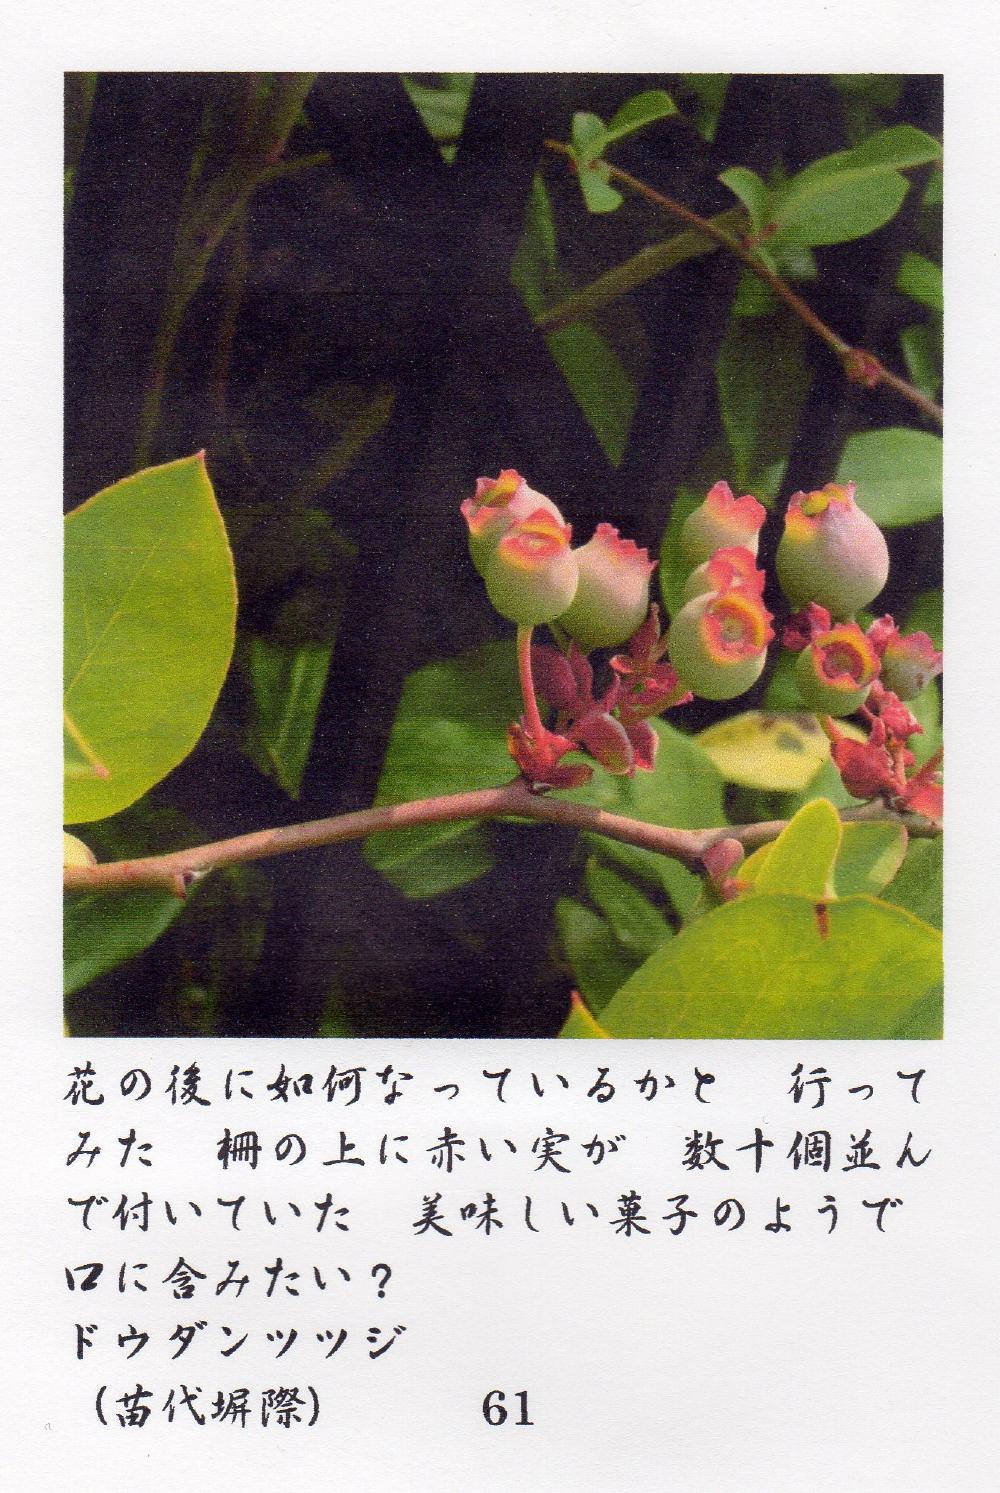 花の後に如何なっているかと　行って
みた　柵の上に赤い実が　数十個並ん
で付いていた　美味しい菓子のようで
口に含みたい？
ドウダンツツジ
（苗代塀際）　　　61